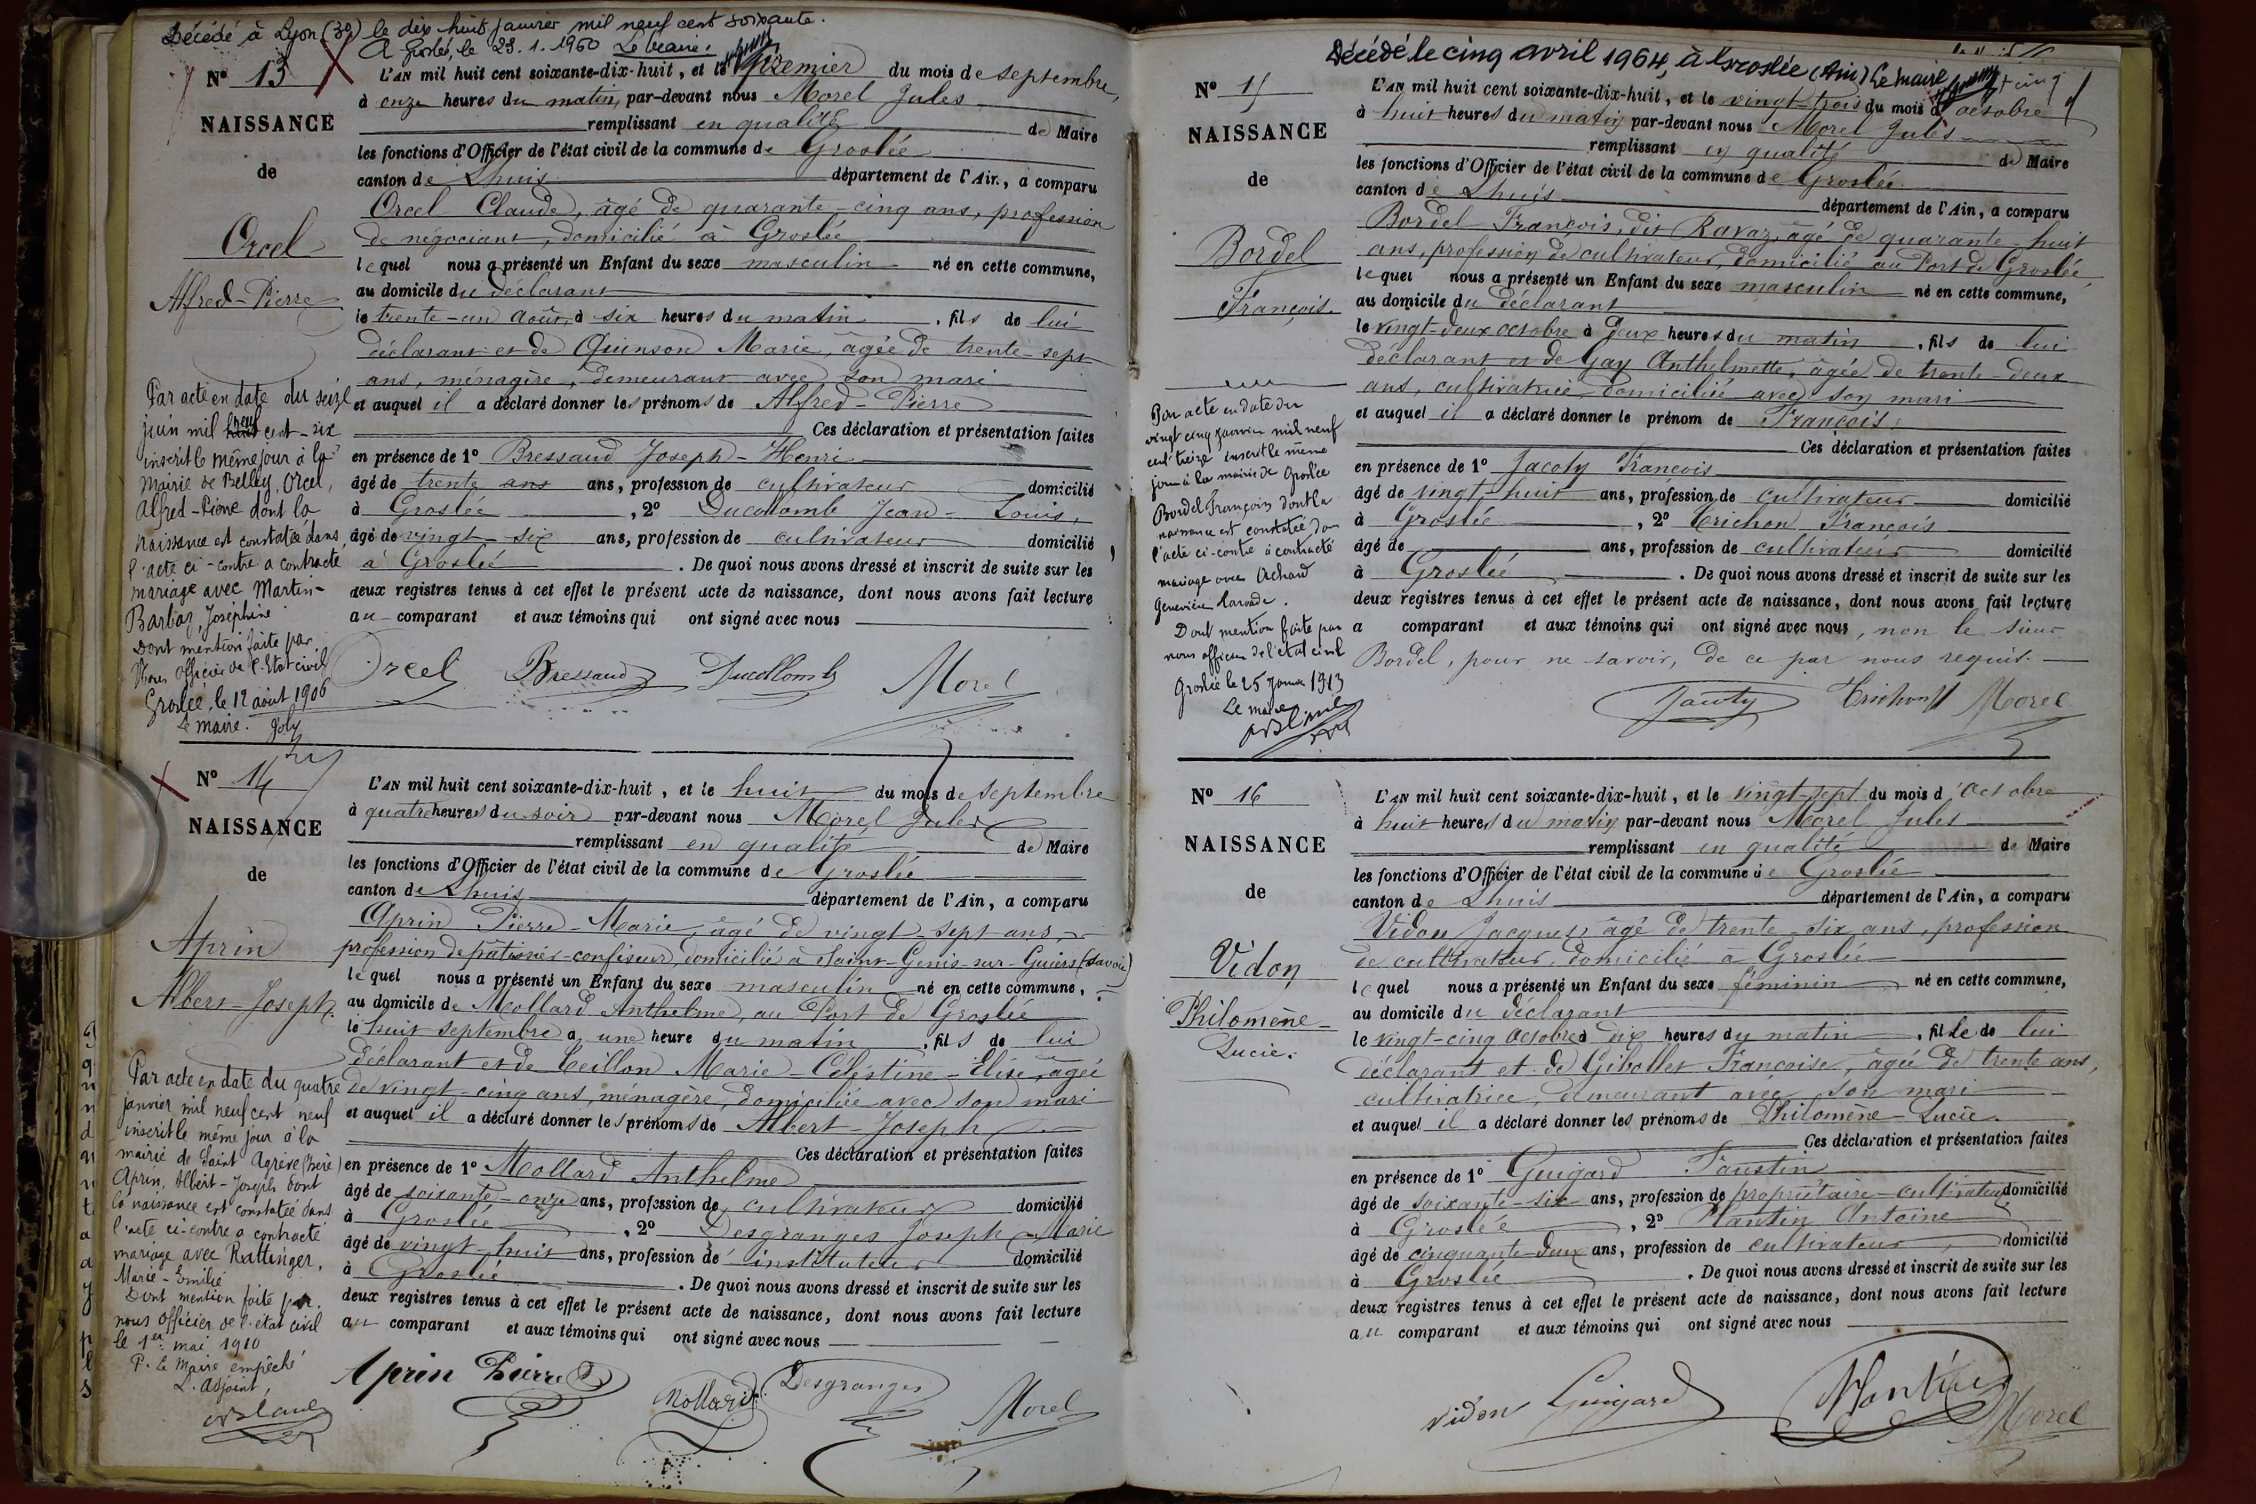 Décédé à Lyon (3e) le dix huit janvier mil neuf cent soixante.
A Groslée, le 23.1.1960 Le Maire.
N° 13
NAISSANCE
de
Orcel
Alfred-Pierre
L'AN mil huit cent soixante-dix-huit, et le premier du mois de septembre,
à onze heures du matin, par-devant nous Morel Jules
remplissant en qualité de Maire
les fonctions d'Officier de l'état civil de la commune de Groslée
canton de Lhuis département de l'Ain, a comparu
Orcel Claude, âgé de quarante-cinq ans, profession
de négociant, domicilié à Groslée
lequel nous a présenté un Enfant du sexe masculin né en cette commune,
au domicile du déclarant
le trente-un août, à six heures du matin, fils de lui
déclarant et de Quinson Marie, âgée de trente-sept
ans, ménagère, demeurant avec son mari
et auquel il a déclaré donner les prénoms de Alfred-Pierre
Ces déclaration et présentation faites
en présence de 1° Bressaud Joseph-Henri
âgé de trente ans ans, profession de cultivateur domicilié
à Groslée, 2° Ducollomb Jean-Louis,
âgé de vingt-six ans, profession de cultivateur domicilié
à Groslée. De quoi nous avons dressé et inscrit de suite sur les
deux registres tenus à cet effet le présent acte de naissance, dont nous avons fait lecture
au comparant et aux témoins qui ont signé avec nous
Orcel Bressaud Ducollomb Morel
Par acte en date du seize
juin mil neuf cent-six
inscrit le même jour à la
Mairie de Belley, Orcel,
Alfred-Pierre dont la
naissance est constatée dans
l'acte ci-contre a contracté
mariage avec Martin-
Barbaz, Joséphine.
Dont mention faite par
Nous officier de l'Etat civil
Groslée, le 12 août 1906
Le maire. Joly
N° 14
NAISSANCE
de
Aprin
Albert-Joseph.
L'AN mil huit cent soixante-dix-huit, et le huit du mois de septembre
à quatre heures du soir par-devant nous Morel Jules
remplissant en qualité de Maire
les fonctions d'Officier de l'état civil de la commune de Groslée
canton de Lhuis département de l'Ain, a comparu
Aprin Pierre-Marie, âgé de vingt-sept ans,
profession de pâtissier-confiseur, domicilié à Saint-Genis-sur-Guiers (Savoie)
lequel nous a présenté un Enfant du sexe masculin né en cette commune,
au domicile de Mollard Anthelme, au Port de Groslée
le huit septembre à une heure du matin, fils de lui
déclarant et de Teillon Marie-Célestine-Elise, âgée
de vingt-cinq ans, ménagère, domiciliée avec son mari
et auquel il a déclaré donner les prénoms de Albert-Joseph
Ces déclaration et présentation faites
en présence de 1° Mollard Anthelme
âgé de soixante-onze ans, profession de cultivateur domicilié
à Groslée, 2° Desgranges Joseph-Marie
âgé de vingt-huit ans, profession de instituteur domicilié
à Groslée. De quoi nous avons dressé et inscrit de suite sur les
deux registres tenus à cet effet le présent acte de naissance, dont nous avons fait lecture
au comparant et aux témoins qui ont signé avec nous
Aprin Pierre Mollard Desgranges Morel
Par acte en date du quatre
janvier mil neuf cent neuf
inscrit le même jour à la
mairie de Saint Agrève
Aprin, Albert-Joseph dont
la naissance est constatée dans
l'acte ci-contre a contracté
mariage avec Rattinger,
Marie-Emilie
Dont mention faite par
nous officier de l'état civil
le 1er mai 1910
P. le Maire empêché
L. adjoint,
Décédé le cinq avril 1964, à Groslée (Ain) Le maire
N° 15
NAISSANCE
de
Bordel
François.
L'AN mil huit cent soixante-dix-huit, et le vingt-trois du mois d'octobre
à huit heures du matin par-devant nous Morel Jules
remplissant en qualité de Maire
les fonctions d'Officier de l'état civil de la commune de Groslée
canton de Lhuis département de l'Ain, a comparu
Bordel François, dit Ravaz, âgé de quarante-huit
ans, profession de cultivateur, domicilié au Port de Groslée
lequel nous a présenté un Enfant du sexe masculin né en cette commune,
au domicile du déclarant
le vingt-deux octobre à deux heures du matin, fils de lui
déclarant et de Gay Anthelmette, âgée de trente-deux
ans, cultivatrice domiciliée avec son mari
et auquel il a déclaré donner le prénom de François
Ces déclaration et présentation faites
en présence de 1° Jacoty François
âgé de vingt-huit ans, profession de cultivateur domicilié
à Groslée, 2° Trichon François
âgé de ans, profession de cultivateur domicilié
à Groslée. De quoi nous avons dressé et inscrit de suite sur les
deux registres tenus à cet effet le présent acte de naissance, dont nous avons fait lecture
a comparant et aux témoins qui ont signé avec nous, non le sieur
Bordel, pour ne savoir, de ce par nous requis.
Trichon Morel
Par acte en date du
vingt cinq janvier mil neuf
cent treize inscrit le même
jour à la mairie de Groslée
Bordel François dont la
naissance est constatée dans
l'acte ci-contre a contracté
mariage avec Achard
Geneviève
Dont mention faite par
nous officier de l'état civil
Groslée le 25 Janvier 1913
Le maire
N° 16
NAISSANCE
de
Vidon
Philomène-
Lucie.
L'AN mil huit cent soixante-dix-huit, et le vingt-sept du mois d'octobre
à huit heures du matin par-devant nous Morel Jules
remplissant en qualité de Maire
les fonctions d'Officier de l'état civil de la commune de Groslée
canton de Lhuis département de l'Ain, a comparu
Vidon Jacques, âgé de trente-six ans, profession
de cultivateur, domicilié à Groslée
lequel nous a présenté un Enfant du sexe féminin né en cette commune,
au domicile du déclarant
le vingt-cinq octobre à dix heures du matin, fille de lui
déclarant et de Gibollet Françoise, âgée de trente ans,
cultivatrice, demeurant avec son mari
et auquel il a déclaré donner les prénoms de Philomène-Lucie.
Ces déclaration et présentation faites
en présence de 1° Guigard Faustin
âgé de soixante-six ans, profession de propriétaire-cultivateur domicilié
à Groslée, 2° Plantin Antoine
âgé de cinquante-deux ans, profession de cultivateur, domicilié
à Groslée. De quoi nous avons dressé et inscrit de suite sur les
deux registres tenus à cet effet le présent acte de naissance, dont nous avons fait lecture
au comparant et aux témoins qui ont signé avec nous
Vidon Guigard Plantin Morel